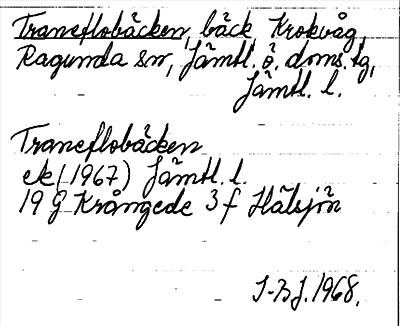 Traneflobäcken, bäck, Krokvåg,
Ragunda sn, Jämtl. ö. doms. tg,
Jämtl. l.
Traneflobäcken
ek (1967) Jämtl. l.
19 G Krångede 3 f Hälsjön
J-BJ. 1968.